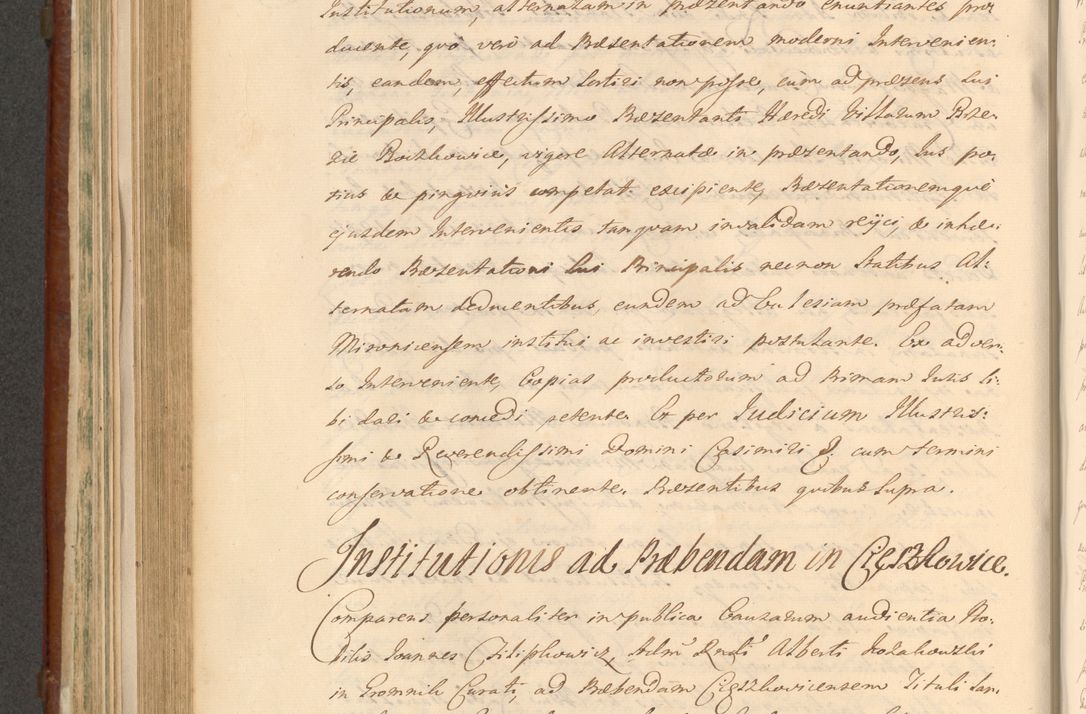 Institutionum, alternatam in præzentando enuntiantes pro
ducente, quô verô ad Præsentationem moderni Intervenien-
tis, eandem, effectum sortiri non posse, cum ad præzens sui
Principalis, Illustrissimo Præzentanti Hæredi Villarum Brze-
zie Rozkowice, vigore Alternatæ in præzentando, Jus po-
tius & pinguius competat excipiente, Præzentationemquè
ejusdem Intervenientis tanquam invalidam rejici, & inhæ-
rendo Præzentationi sui Principalis necnon Statibus Al-
ternatam deducentibus, eundem ad Ecclesiam præfatam
Mironicensem institui ac investiri postulante. Ex adver-
so Interveniente, Copias productorum ad Primam Juris si-
bi dari & concedi petente. Et per Judicium Illustris-
simi & Reverendissimi Domini Casimiri P. cum termini
conservatione obtinente. Præzentibus quibus supra.
Institutionis ad Præbendam in Cięszkowice.
Comparens personaliter in publica Cauzarum audientia No-
bilis Joannes Filipkowicz, Adm Rndi Alberti Kozakowski
in Gromnik Curati, ad Præbendam Cięszkovicensem Tituli San-